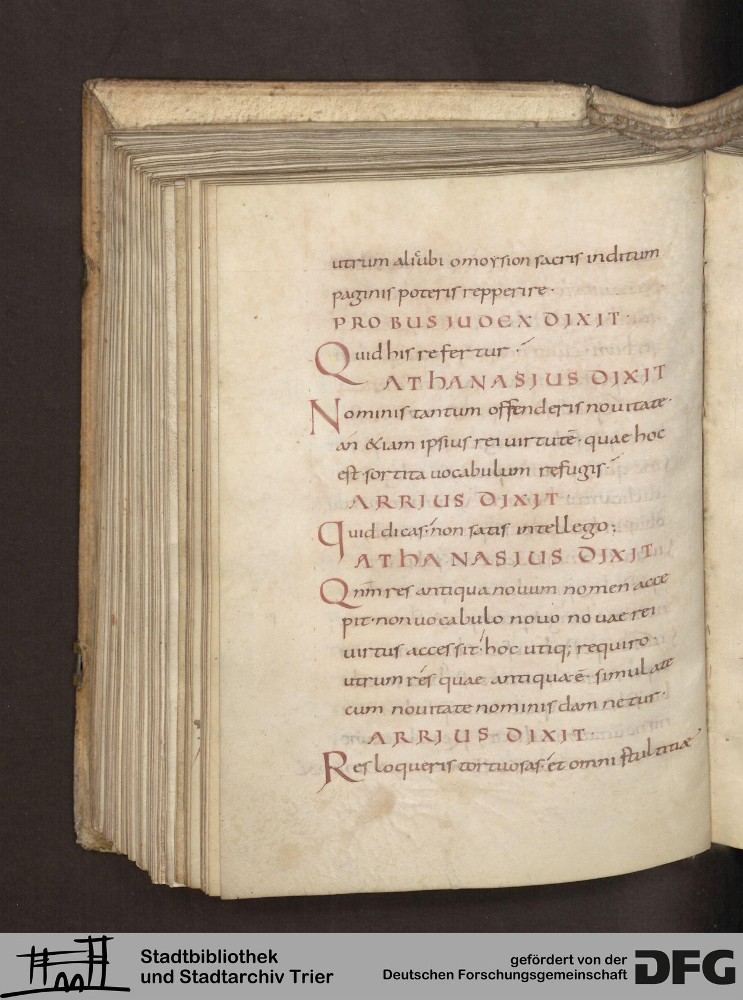 utrum aliubi omoysion sacris inditum
paginis poteris repperire·
PROBUS IUDEX DIXIT·
Quid his refertur·
ATHANASIUS DIXIT
Nominis tantum offenderis nouitate·
an &iam ipsius rei uirtutē· quae hoc
est sortita uocabulum refugis·
ARRIUS DIXIT
Quid dicas· non satis intellego;
ATHANASIUS DIXIT
Qnm̄ res antiqua nouum nomen acce
pit· non uocabulo nouo nouae rei
uirtus accessit· hoc utiq; requiro·
utrum res quae antiqua ē· simulate
cum nouitate nominis damnetur·
ARRIUS DIXIT
Res loqueris tortuosas· et omni stultitiae
Stadtbibliothek
und Stadtarchiv Trier
gefördert von der
Deutschen Forschungsgemeinschaft
DFG